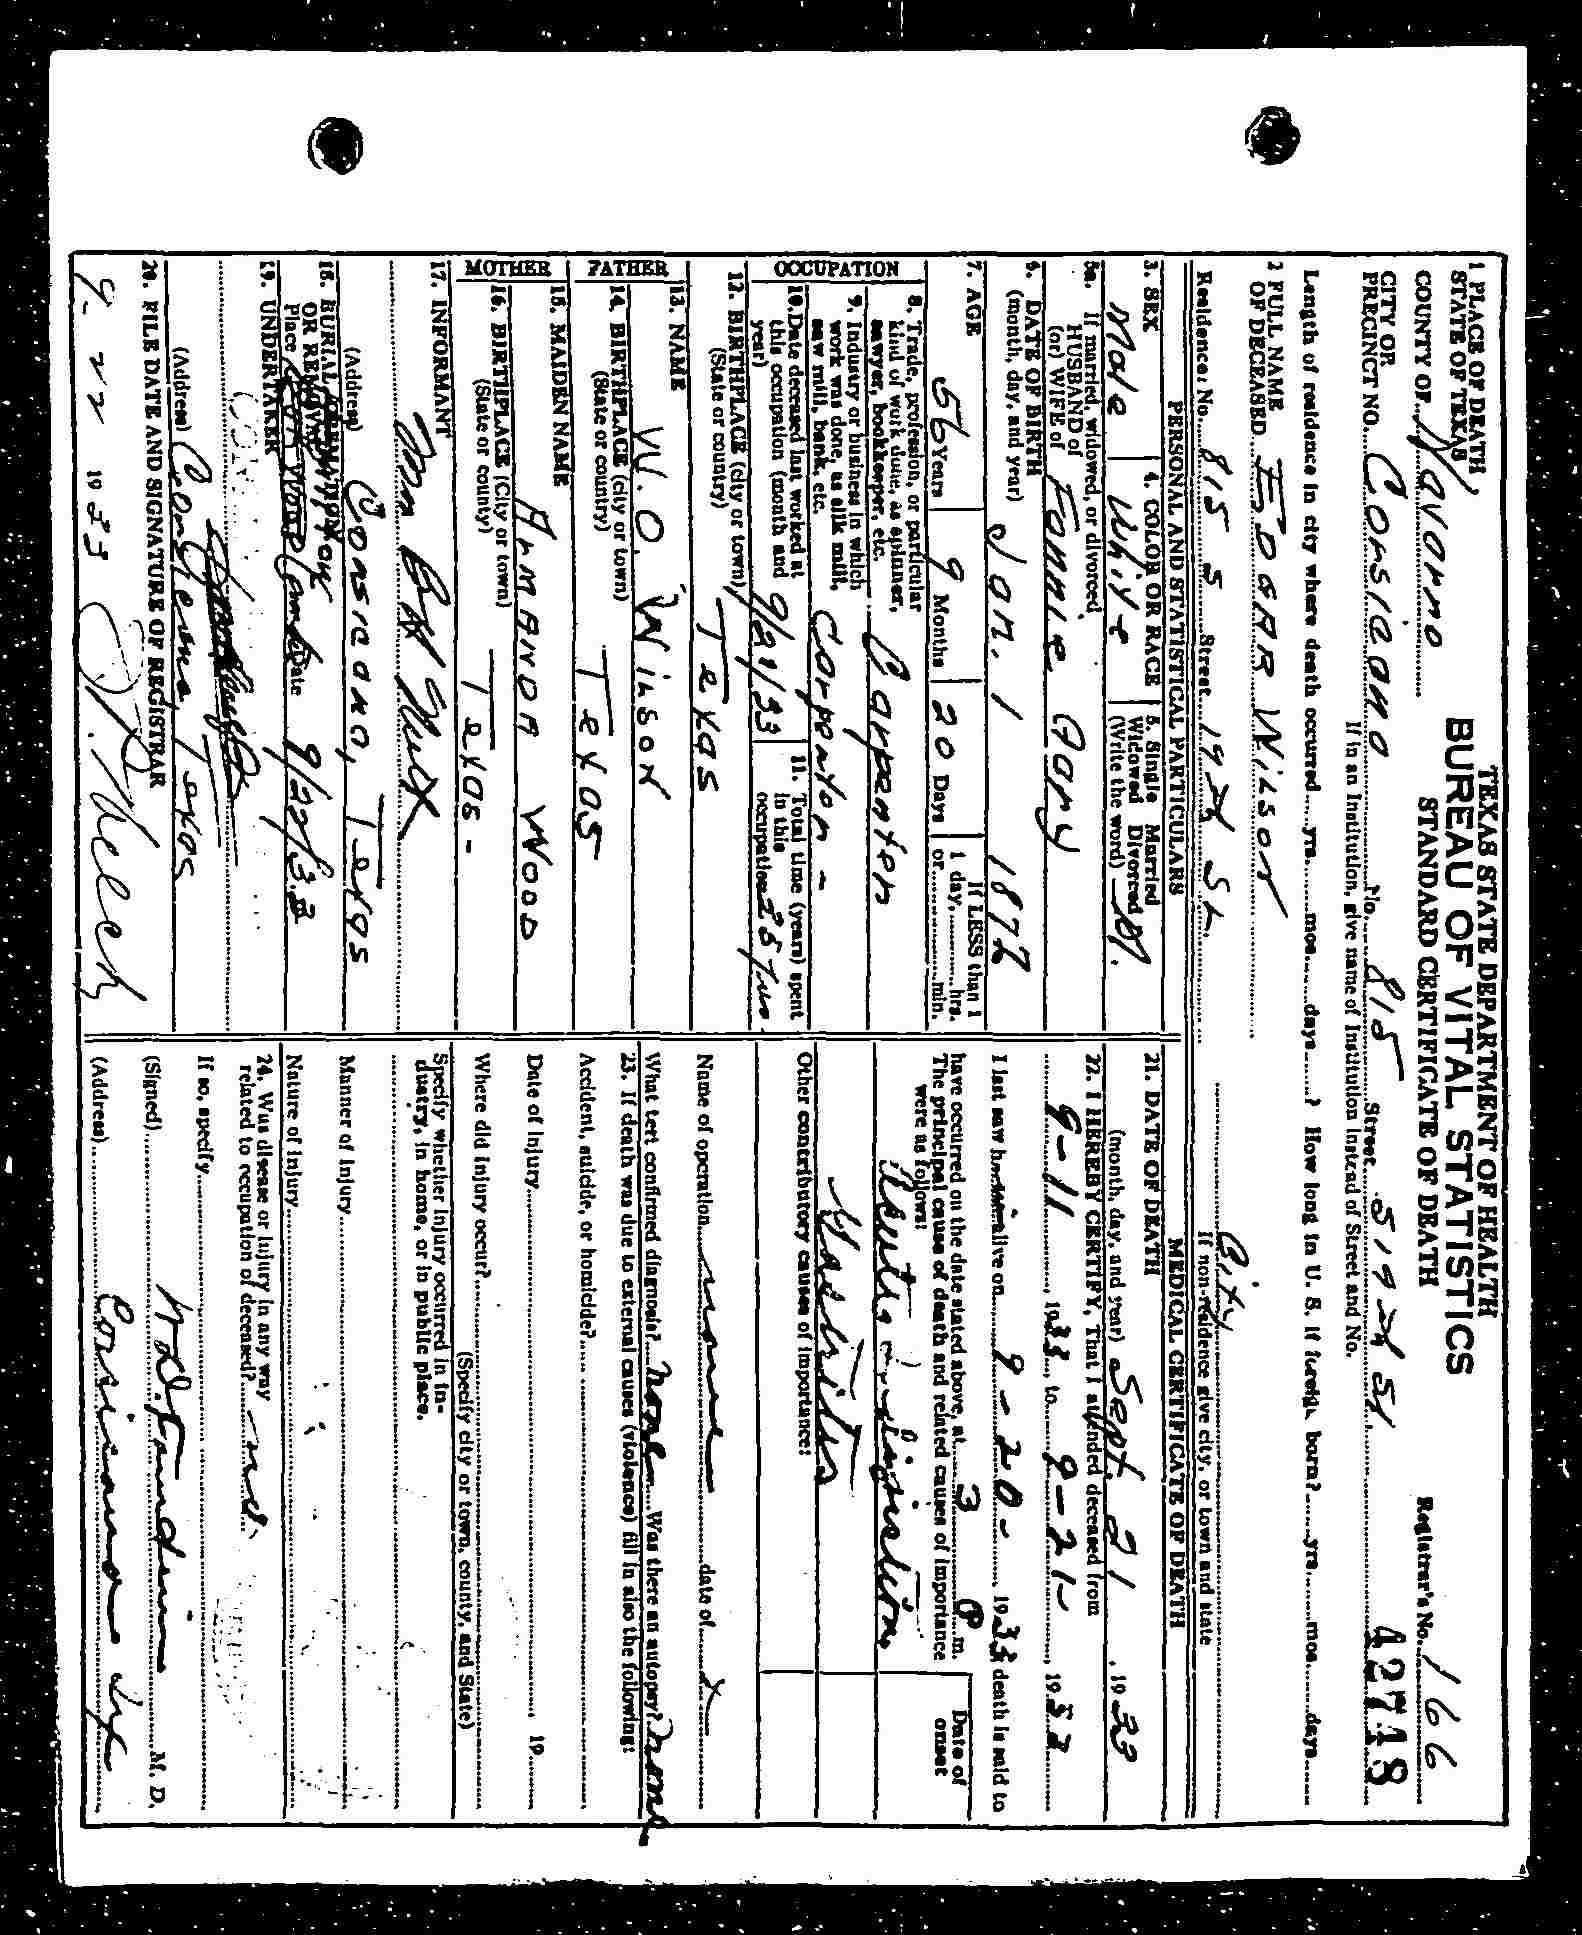 TEXAS STATE DEPARTMENT OF HEALTH
BUREAU OF VITAL STATISTICS
STANDARD CERTIFICATE OF DEATH
1 PLACE OF DEATH
STATE OF TEXAS
COUNTY OF Navarro
Registrar's No. 166
42718
CITY OR
PRECINCT NO. Corsicana No. 815 Street S 19th St.
If in an institution, give name of institution instead of Street and No.
Length of residence in city where death occurred yrs. mos. days ? How long in U. S. if foreign born? yrs. mos. days
2 FULL NAME
OF DECEASED EDGAR WILSON
Residence: No. 815 S Street 19th St. City
If non-residence give city, or town and state
PERSONAL AND STATISTICAL PARTICULARS
3. SEX
Male
4. COLOR OR RACE
White
5. Single Married
Widowed Divorced
(Write the word) M.
5a. If married, widowed, or divorced
HUSBAND of
(or) WIFE of Fannie
6. DATE OF BIRTH
(month, day, and year) Jan. 1 1877
7. AGE
56 Years 9 Months 20 Days
If LESS than 1
1 day, hrs.
or min.
OCCUPATION
8. Trade, profession, or particular
kind of work done, as spinner,
sawyer, bookkeeper, etc. Carpenter
9. Industry or business in which
work was done, as silk mill,
saw mill, bank, etc.
10. Date deceased last worked at
this occupation (month and
year) 9/21/33
11. Total time (years) spent
in this
occupation 25 yrs.
12. BIRTHPLACE (city or town)
(State or country) Texas
FATHER
13. NAME W. O. Wilson
14. BIRTHPLACE (city or town)
(State or country) Texas
MOTHER
15. MAIDEN NAME AMANDA WOOD
16. BIRTHPLACE (City or town)
(State or county) Texas -
17. INFORMANT
(Address) Corsicana, Texas
18. BURIAL, CREMATION
OR REMOVAL
Place Date 9/22/33
19. UNDERTAKER
(Address) Corsicana Texas
20. FILE DATE AND SIGNATURE OF REGISTRAR
9. 22 1933
MEDICAL CERTIFICATE OF DEATH
21. DATE OF DEATH
(month, day, and year) Sept. 21, 1933
22. I HEREBY CERTIFY, That I attended deceased from
9-11, 1933, to 9-21-, 1933
I last saw h alive on 9-20-, 1933 death is said to
have occurred on the date stated above, at 3 P m.
The principal cause of death and related causes of importance
were as follows:
Date of
onset
Acute indigestion
Gastritis
Other contributory causes of importance:
Name of operation none date of x
What test confirmed diagnosis? none Was there an autopsy? none
23. If death was due to external causes (violence) fill in also the following:
Accident, suicide, or homicide?
Date of injury 19
Where did injury occur?
(Specify city or town, county, and State)
Specify whether injury occurred in in-
dustry, in home, or in public place.
Manner of injury
Nature of injury
24. Was disease or injury in any way
related to occupation of deceased? no
If so, specify
(Signed) M. D.
(Address) Corsicana Tex